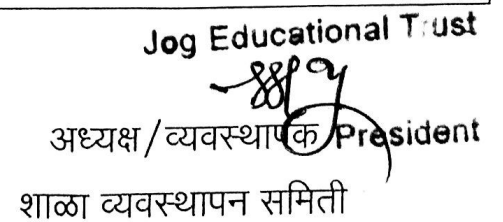 Jog Educational Trust
अध्यक्ष/व्यवस्थापक President
शाळा व्यवस्थापन समिती